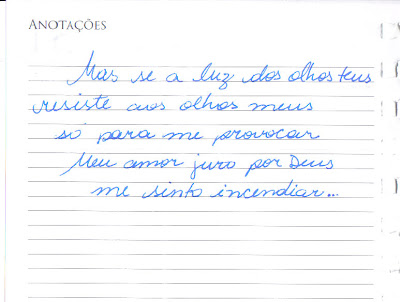 ANOTAÇÕES
Mas se a luz dos olhos teus
resiste aos olhos meus
só para me provocar
Meu amor juro por Deus
me sinto incendiar...